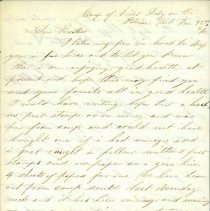 Camp of Picket Duty on the
Potomac Md Jan 22nd
Dear Brother
I take my pen in hand to drop
you a few lines and to let you know
that I am enjoying good health at
present and hope this may find you
and your family all in good health
I would have written before but I had
no post stamps or no money and was
far from camp and could not have
bought one if I had money and
I just caught a fellow with a few
stamps and no paper so I gave him
4 sheets of paper for one We have been
out from camp since last Monday
week and it has been raining and snowing